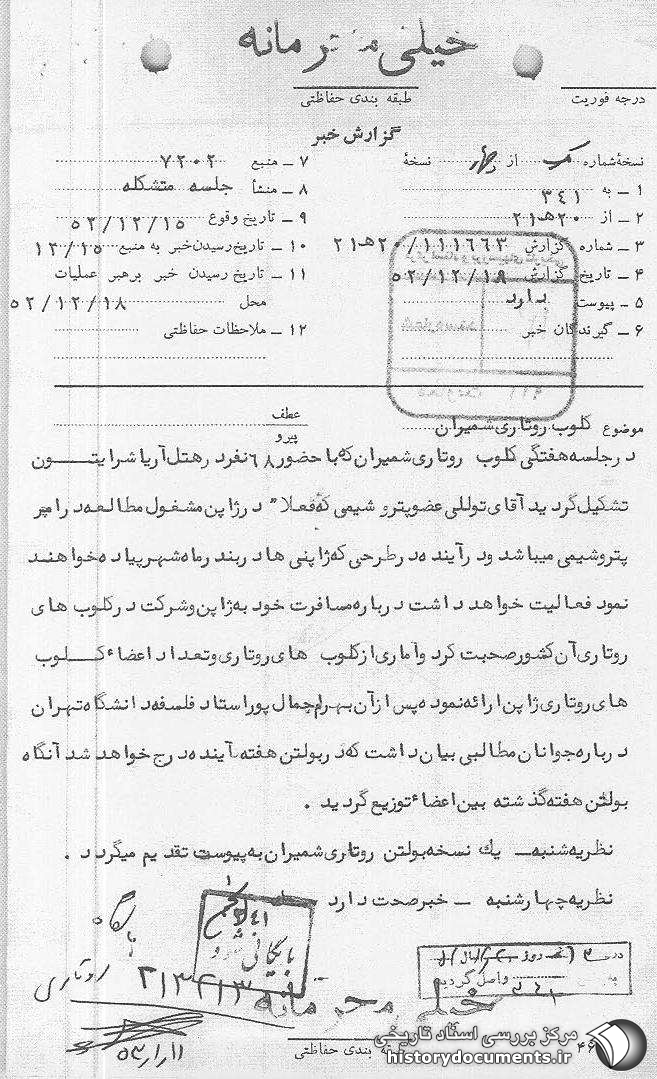 خیلی محرمانه
درجه فوریت
طبقه بندی حفاظتی
گزارش خبر
نسخهٔ شماره یک از چهار نسخهٔ
۱ ـ به ۳۴۱
۲ ـ از ۲۰هـ۲۱
۳ ـ شماره گزارش ۱۱۱۶۶۳/۲۰هـ۲۱
۴ ـ تاریخ گزارش ۵۲/۱۲/۱۹
۵ ـ پیوست دارد
۶ ـ گیرندگان خبر
۷ ـ منبع ۷۲۰۲
۸ ـ منشأ جلسه متشکله
۹ ـ تاریخ وقوع ۵۲/۱۲/۱۵
۱۰ ـ تاریخ رسیدن خبر به منبع ۱۲/۱۵
۱۱ ـ تاریخ رسیدن خبر برهبر عملیات
محل ۵۲/۱۲/۱۸
۱۲ ـ ملاحظات حفاظتی
موضوع کلوب روتاری شمیران
عطف
پیرو
در جلسه هفتگی کلوب روتاری شمیران که با حضور ۶۸ نفر در هتل آریا شرایتون
تشکیل گردید آقای توللی عضو پتروشیمی که فعلا" در ژاپن مشغول مطالعه در امر
پتروشیمی میباشد و در آینده در طرحی که ژاپنی ها در بندر ماهشهر پیاده خواهند
نمود فعالیت خواهد داشت درباره مسافرت خود به ژاپن و شرکت در کلوب های
روتاری آن کشور صحبت کرد و آماری از کلوب های روتاری و تعداد اعضاء کلوب
های روتاری ژاپن ارائه نموده پس از آن بهرام جمال پور استاد فلسفه دانشگاه تهران
درباره جوانان مطالبی بیان داشت که در بولتن هفته آینده درج خواهد شد آنگاه
بولتن هفته گذشته بین اعضاء توزیع گردید .
نظریه شنبه ـ یك نسخه بولتن روتاری شمیران به پیوست تقدیم میگردد .
نظریه چهارشنبه ـ خبر صحت دارد
۳۴۱
بایگانی شود
روتاری
۲۱۳۲۱۳
۵۳/۱/۱۱
واصل گردید
۳۴۱
خیلی محرمانه
طبقه بندی حفاظتی
مرکز بررسی اسناد تاریخی
historydocuments.ir